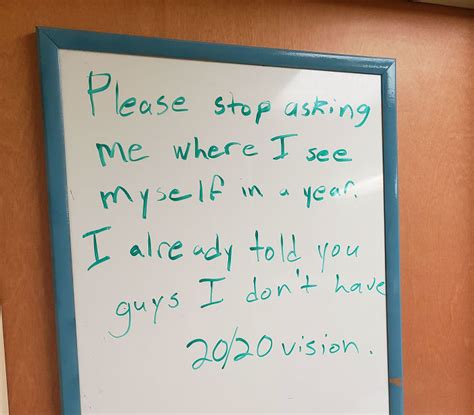 Please stop asking
me where I see
myself in a year.
I already told you
guys I don't have
20/20 vision.